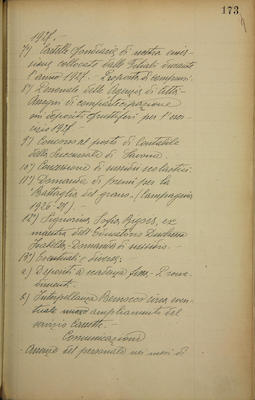 173
1927. -
7°) Cartelle fondiarie di nostra emis-
sione collocate dalle Filiali durante
l'anno 1927. - Proposta di compensi.
8°) Domande delle Agenzie di
di compartecipazione
sui depositi fruttiferi per l'eser-
cizio 1927
9°) Concorso al posto di Contabile
della Succursale di Savona
10°) Concessione di sussidi scolastici.
11°) Domanda di premi per la
Battaglia del grano. - (Campagna
1926-27). -
12°) Signorina Sofia, ex
maestra dell'Educatorio Duchessa
Isabella - Domanda di sussidio. -
13°) Eventuali e diversi: -
a) Depositi a scadenza fissa - Provve-
dimenti. -
b) Interpellanza circa even-
tuale nuovo ampliamento del
servizio cassette. -
Comunicazioni
Assenze del personale nei mesi di